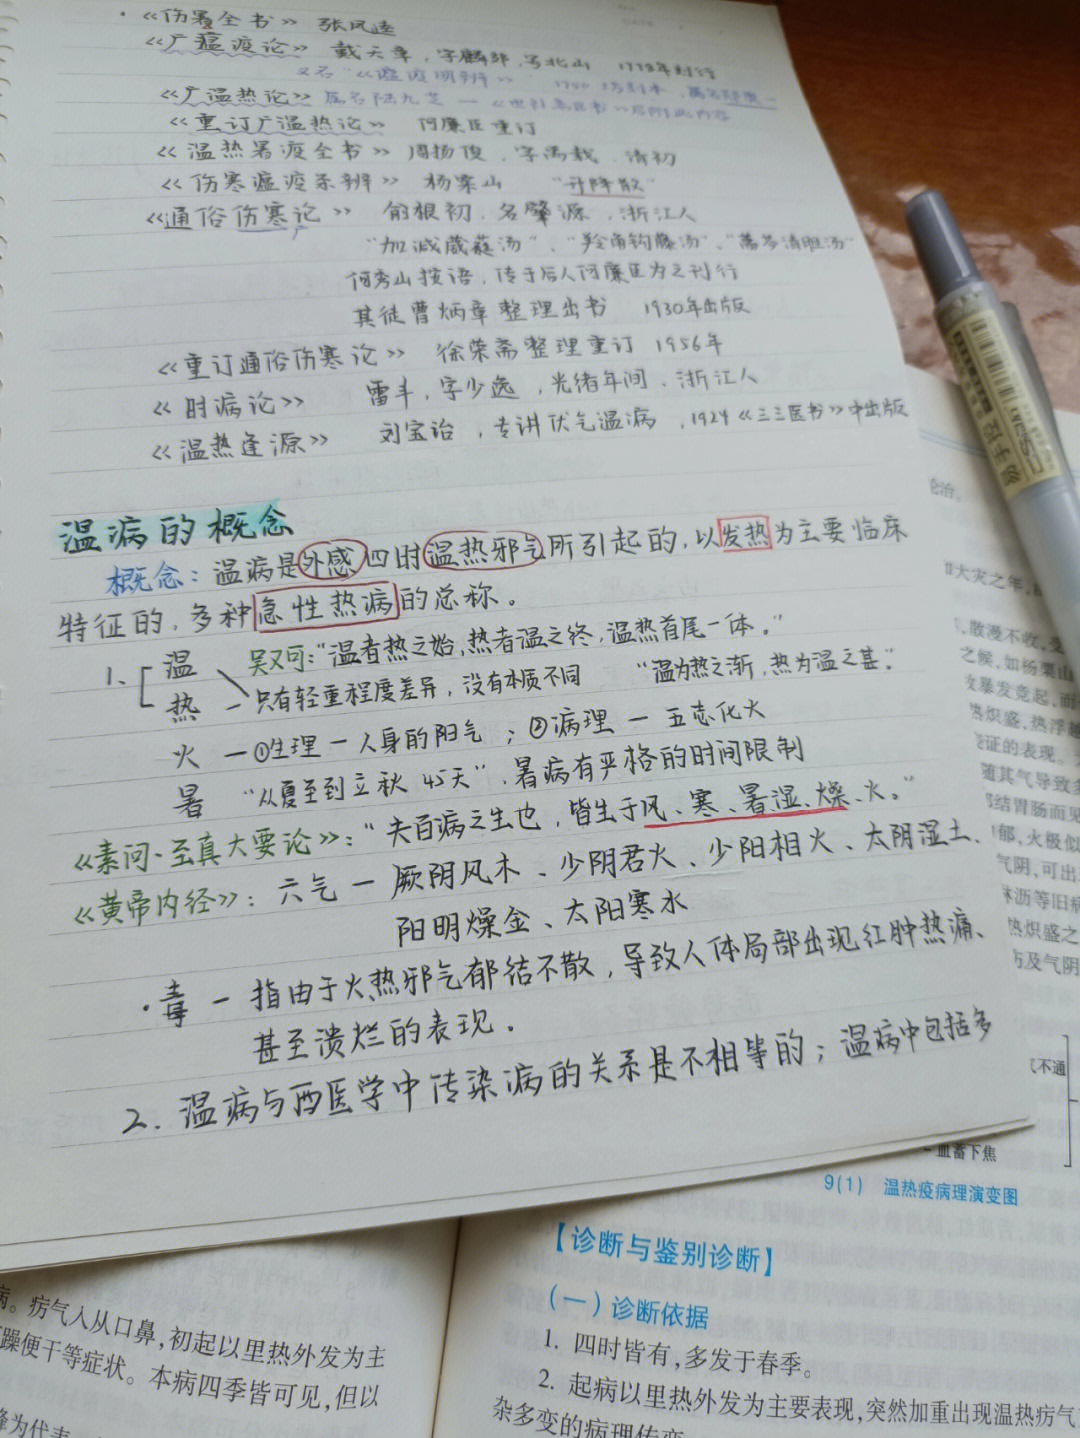 ·《伤暑全书》 张凤逵
《广瘟疫论》 戴天章，字麟郊，号北山 1778年刊行
又名《瘟疫明辨》 1750
《广温热论》 陆九芝 — 《世补斋医书》
《重订广温热论》 何廉臣重订
《温热暑疫全书》 周扬俊，字禹载 清初
《伤寒瘟疫条辨》 杨栗山 “升降散”
《通俗伤寒论》 俞根初，名肇源，浙江人
“加减葳蕤汤”、“羚角钩藤汤”、“蒿芩清胆汤”
何秀山按语，传于后人何廉臣为之刊行
其徒曹炳章整理出书 1930年出版
《重订通俗伤寒论》 徐荣斋整理重订 1956年
《时病论》 雷丰，字少逸，光绪年间，浙江人
《温热逢源》 刘宝诒，专讲伏气温病，1924《三三医书》中出版
温病的概念
概念：温病是外感四时温热邪气所引起的，以发热为主要临床
特征的，多种急性热病的总称。
1、温 吴又可：“温者热之始，热者温之终，温热首尾一体。”
热 — 只有轻重程度差异，没有本质不同 “温为热之渐，热为温之甚。”
火 — ①生理 — 人身的阳气；②病理 — 五志化火
暑 “从夏至到立秋 45天”，暑病有严格的时间限制
《素问·至真大要论》：“夫百病之生也，皆生于风、寒、暑湿、燥、火。”
《黄帝内经》：六气 — 厥阴风木、少阴君火、少阳相火、太阴湿土、
阳明燥金、太阳寒水
·毒 — 指由于火热邪气郁结不散，导致人体局部出现红肿热痛、
甚至溃烂的表现。
2. 温病与西医学中传染病的关系是不相等的；温病中包括多
论治。
大灾之年，
，散漫不收，受
之候，如杨栗山
暴发竞起，而
热炽盛，热浮越
证的表现。
随其气导致多
结胃肠而见
郁，火极似
气阴，可出
淋沥等旧病
热炽盛之
及气阴
不通
血蓄下焦
9(1) 温热疫病理演变图
【诊断与鉴别诊断】
（一）诊断依据
1. 四时皆有，多发于春季。
2. 起病以里热外发为主要表现，突然加重出现温热疠气
杂多变的病理传变
病。疠气人从口鼻，初起以里热外发为主
躁便干等症状。本病四季皆可见，但以
为代表
斑马按